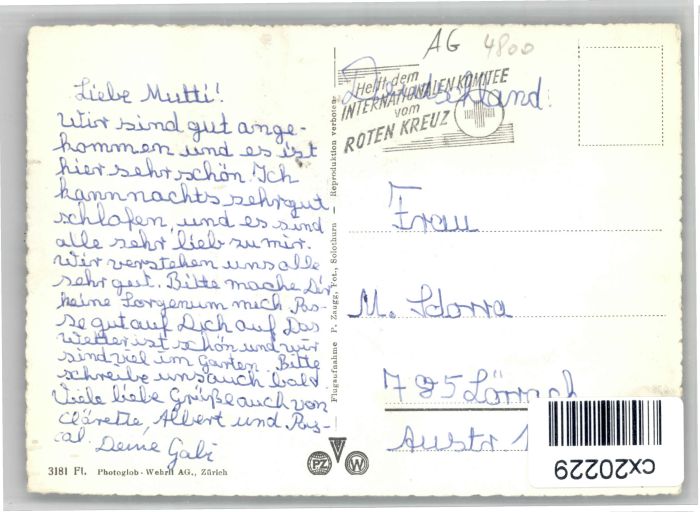 AG 4800
Liebe Mutti!
Wir sind gut ange-
kommen und es ist
hier sehr schön. Ich
kann nachts sehr gut
schlafen, und es sind
alle sehr lieb zu mir.
Wir verstehen uns alle
sehr gut. Bitte mache Dir
keine Sorgen um mich Pas-
se gut auf Dich auf Das
Wetter ist schön und wir
sind viel im Garten. Bitte
schreibe uns auch bald
Viele liebe Grüße auch von
Clärette, Albert und Pas-
cal. Deine Gabi
3181 Fl. Photoglob-Wehrli AG., Zürich
Flugaufnahme P. Zaugg, Fot., Solothurn — Reproduktion verboten.
PZ W
Deutschland.
Helft dem
INTERNATIONALEN KOMITEE
vom
ROTEN KREUZ
Frau
M. Sdorra
785 Lörrach
Austr 1
cx20229